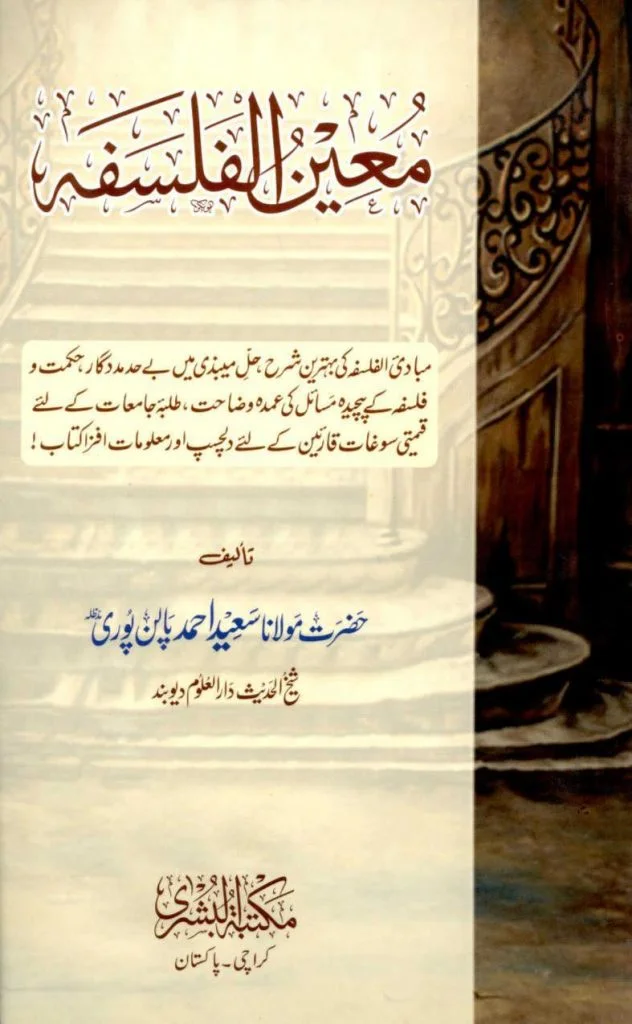 مُعِیْنُ الفَلسَفَه
مبادئ الفلسفہ کی بہترین شرح، حلِّ میبذی میں بے حد مددگار، حکمت و
فلسفہ کے پیچیدہ مَسائل کی عمدہ وضاحت، طلبۂ جامعات کے لئے
قیمتی سوغات قارئین کے لئے دلچسپ اور معلومات افزا کتاب!
تألیف
حَضرَت مَولانا سَعِیْد احمد پالن پُوری مدظلہ
شیخُ الحَدِیث دَارالعُلوُم دیوبند
مَکتَبَۃُ البُشریٰ
کراچی - پاکستان